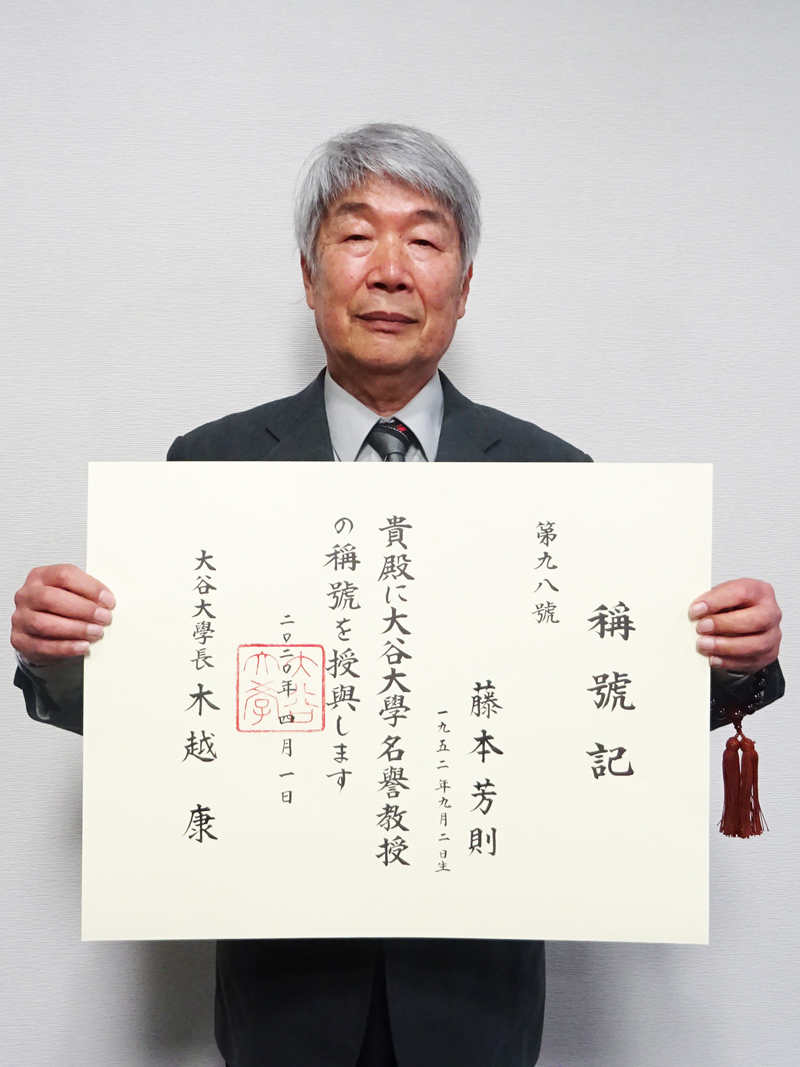 稱號記
第九八號
藤本芳則
一九五二年九月二日生
貴殿に大谷大學名譽教授
の稱號を授與します
二〇二〇年四月一日
大谷大學長 木越 康
大谷
大學